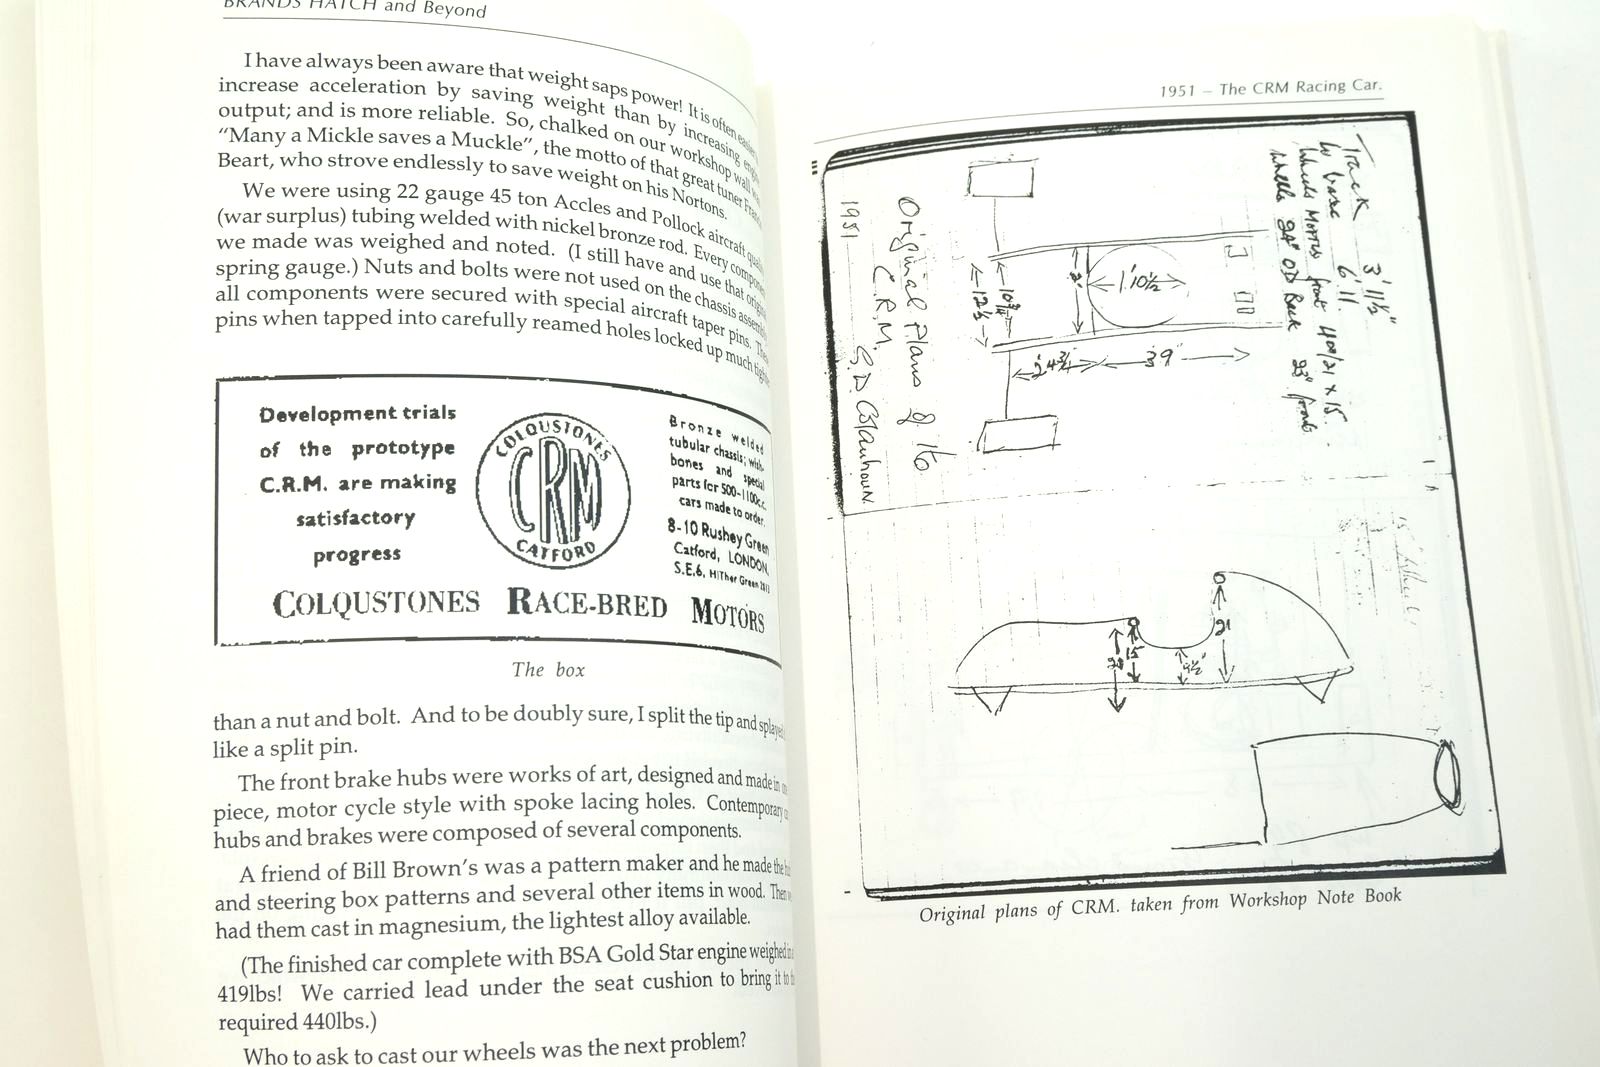 BRANDS HATCH and Beyond
I have always been aware that weight saps power! It is often easier
increase acceleration by saving weight than by increasing
output; and is more reliable. So, chalked on our workshop wall
"Many a Mickle saves a Muckle", the motto of that great tuner
Beart, who strove endlessly to save weight on his Nortons.
We were using 22 gauge 45 ton Accles and Pollock aircraft
(war surplus) tubing welded with nickel bronze rod. Every
we made was weighed and noted. (I still have and use that
spring gauge.) Nuts and bolts were not used on the chassis
all components were secured with special aircraft taper pins.
pins when tapped into carefully reamed holes locked up much
Development trials
of the prototype
C.R.M. are making
satisfactory
progress
COLQUSTONES
CRM
CATFORD
Bronze welded
tubular chassis; wish-
bones and special
parts for 500-1100c.c.
cars made to order.
8-10 Rushey Green
Catford, LONDON,
S.E.6, HITher Green
COLQUSTONES RACE-BRED MOTORS
The box
than a nut and bolt. And to be doubly sure, I split the tip and splayed
like a split pin.
The front brake hubs were works of art, designed and made in
piece, motor cycle style with spoke lacing holes. Contemporary
hubs and brakes were composed of several components.
A friend of Bill Brown's was a pattern maker and he made the
and steering box patterns and several other items in wood. Then
had them cast in magnesium, the lightest alloy available.
(The finished car complete with BSA Gold Star engine weighed
419lbs! We carried lead under the seat cushion to bring it to
required 440lbs.)
Who to ask to cast our wheels was the next problem?
1951 – The CRM Racing Car.
Track 3' 11½"
W base 6' 11.
Wheels Morris front 400/21 x 15.
Wheels 24" OD Back 23" front
1'10½
39"
12½
Original Plans of 16
C.R.M.
1951
21
15
4½"
Original plans of CRM. taken from Workshop Note Book